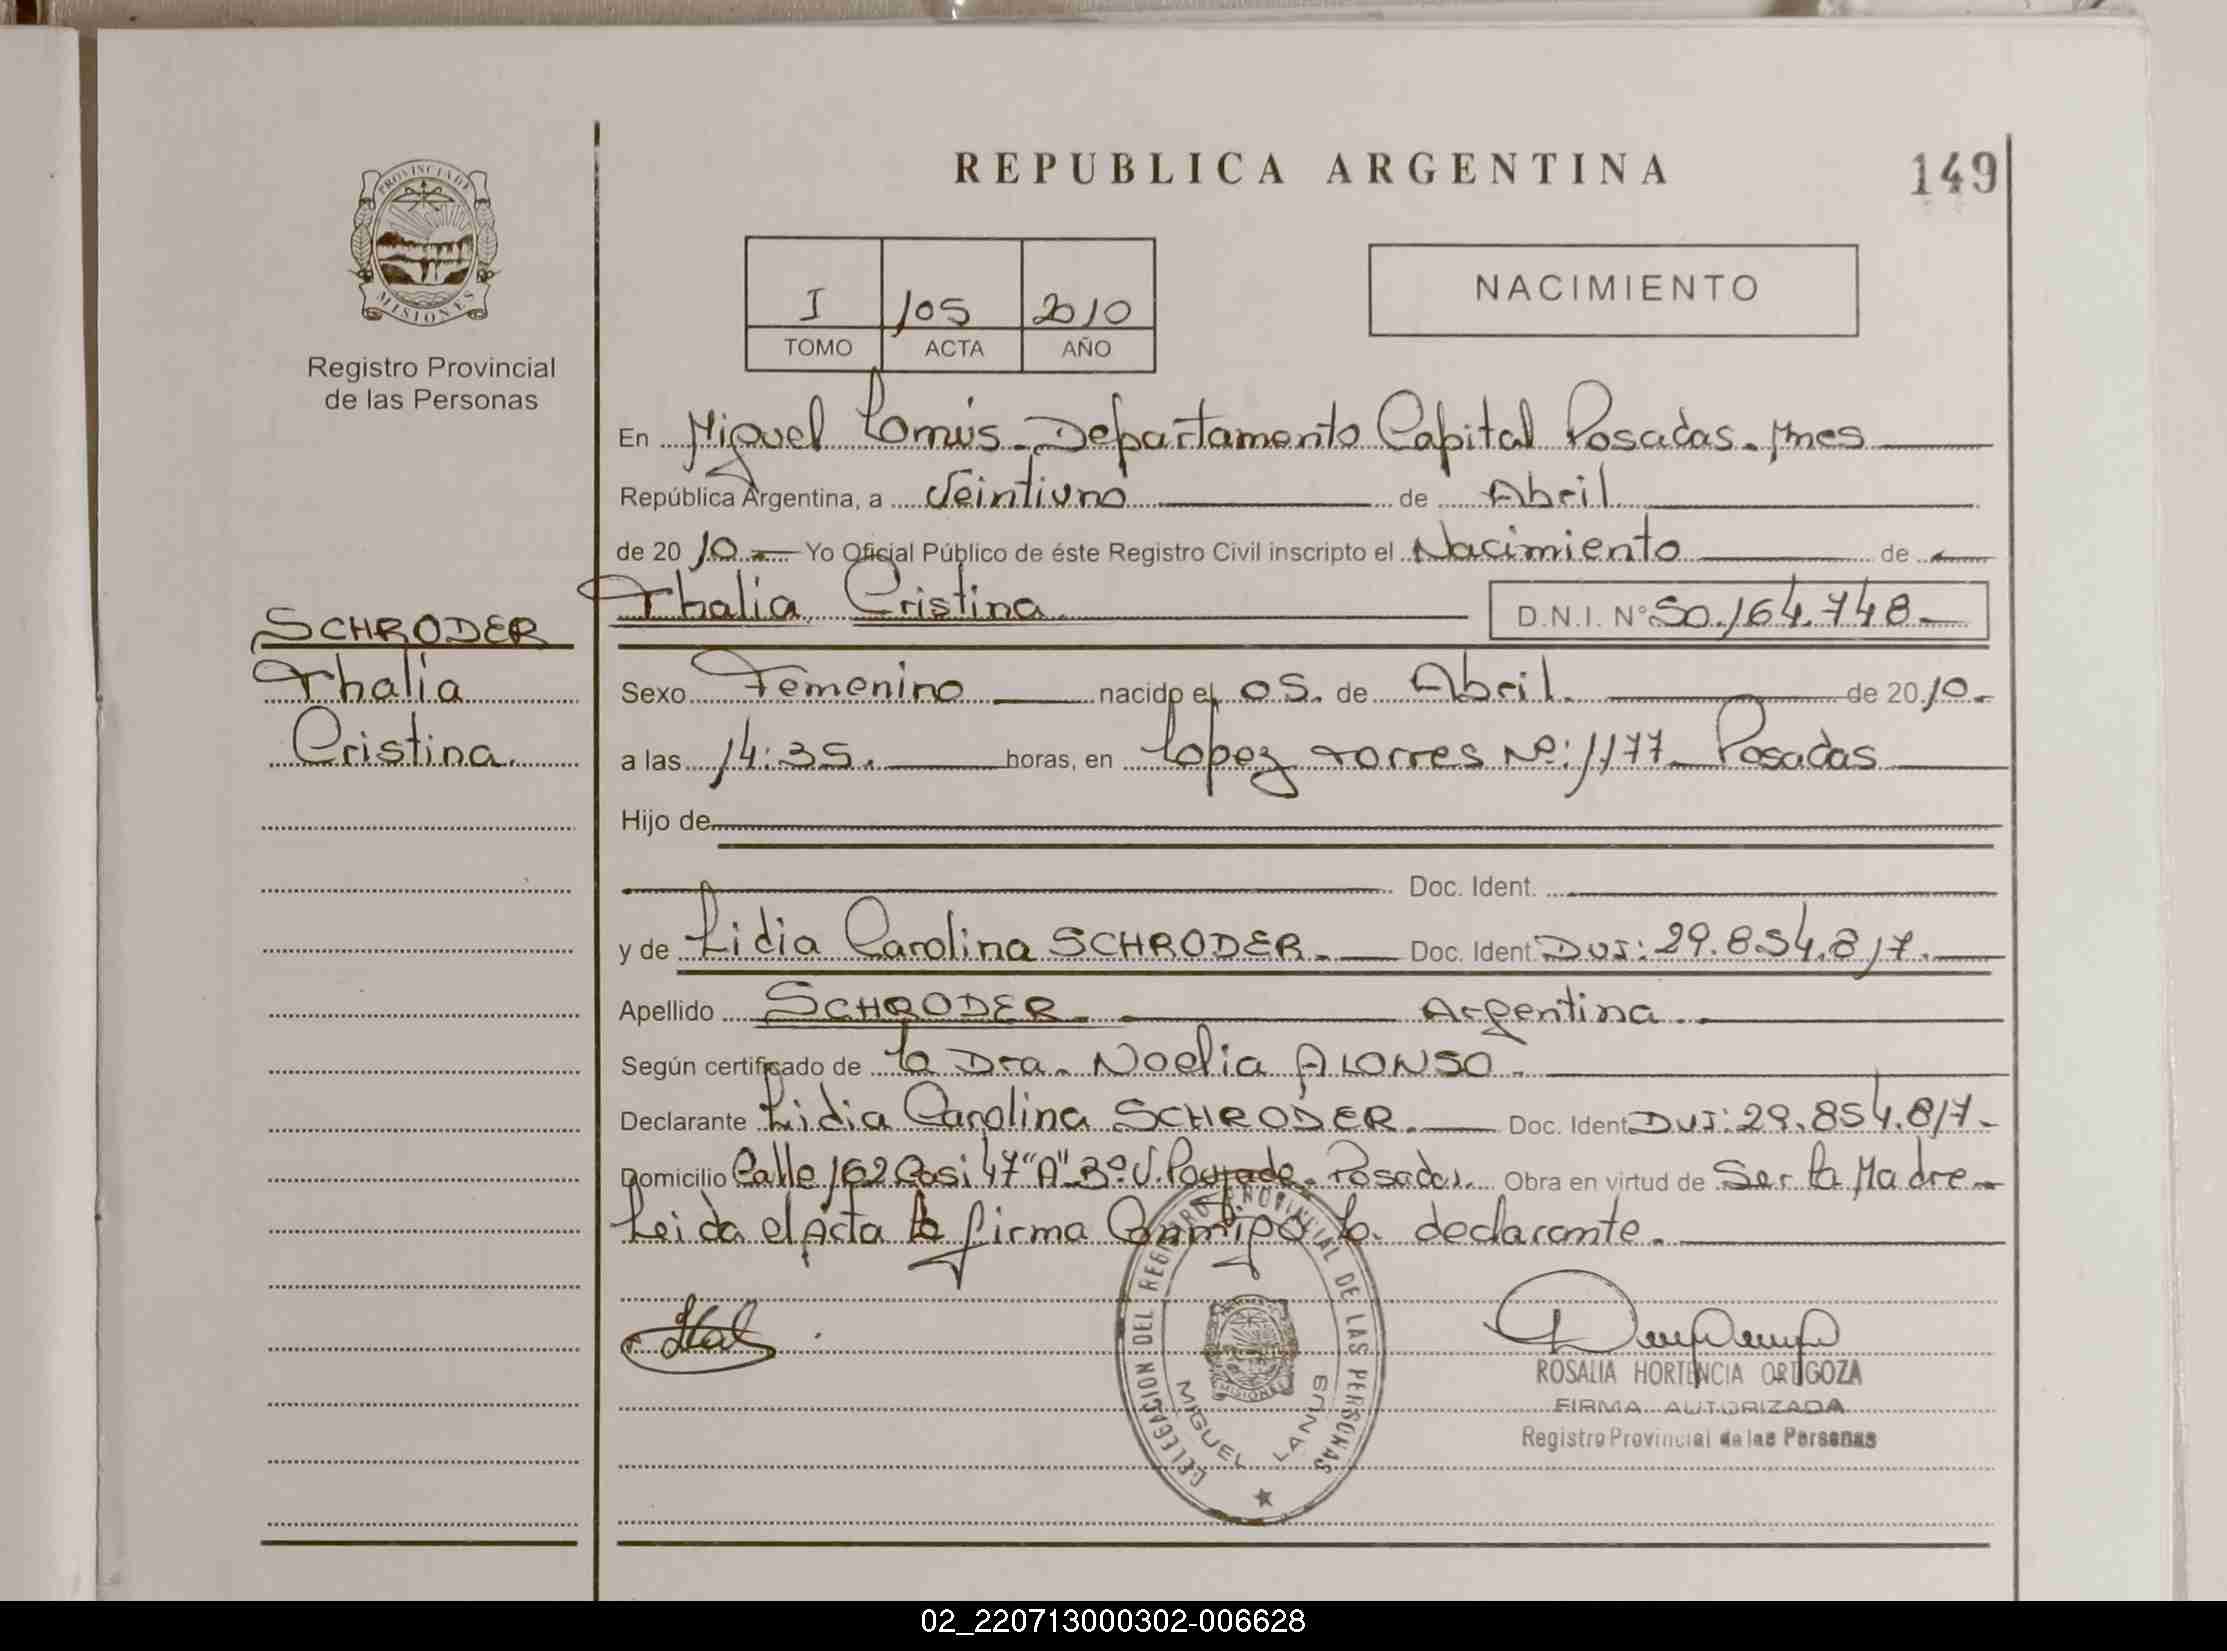 REPUBLICA ARGENTINA
149
PROVINCIA DE
MISIONES
Registro Provincial
de las Personas
I 105 2010
TOMO ACTA AÑO
NACIMIENTO
En Miguel Lanús. Departamento Capital Posadas. Mnes
República Argentina, a Veintiuno de Abril
de 2010 Yo Oficial Público de éste Registro Civil inscripto el Nacimiento de
Thalia Cristina D.N.I. Nº 50.164.748
SCHRODER
Thalia
Cristina.
Sexo Femenino nacido el 05. de Abril. de 2010.
a las 14:35. horas, en Lopez Torres Nº: 1177 Posadas
Hijo de
Doc. Ident.
y de Lidia Carolina SCHRODER. Doc. Ident. DNI: 29.854.817.
Apellido SCHRODER. Argentina.
Según certificado de la Dra. Noelia ALONSO.
Declarante Lidia Carolina SCHRODER. Doc. Ident. DNI: 29.854.817.
Domicilio Calle 162 Casi 47 "A" Bº V. Posadas. Obra en virtud de Ser la Madre
Leida el Acta la firma Conmigo la declarante.
DELEGACION DEL REGISTRO PROVINCIAL DE LAS PERSONAS
MISIONES
MIGUEL LANUS
ROSALIA HORTENCIA ORTIGOZA
FIRMA AUTORIZADA
Registro Provincial de las Personas
02_220713000302-006628